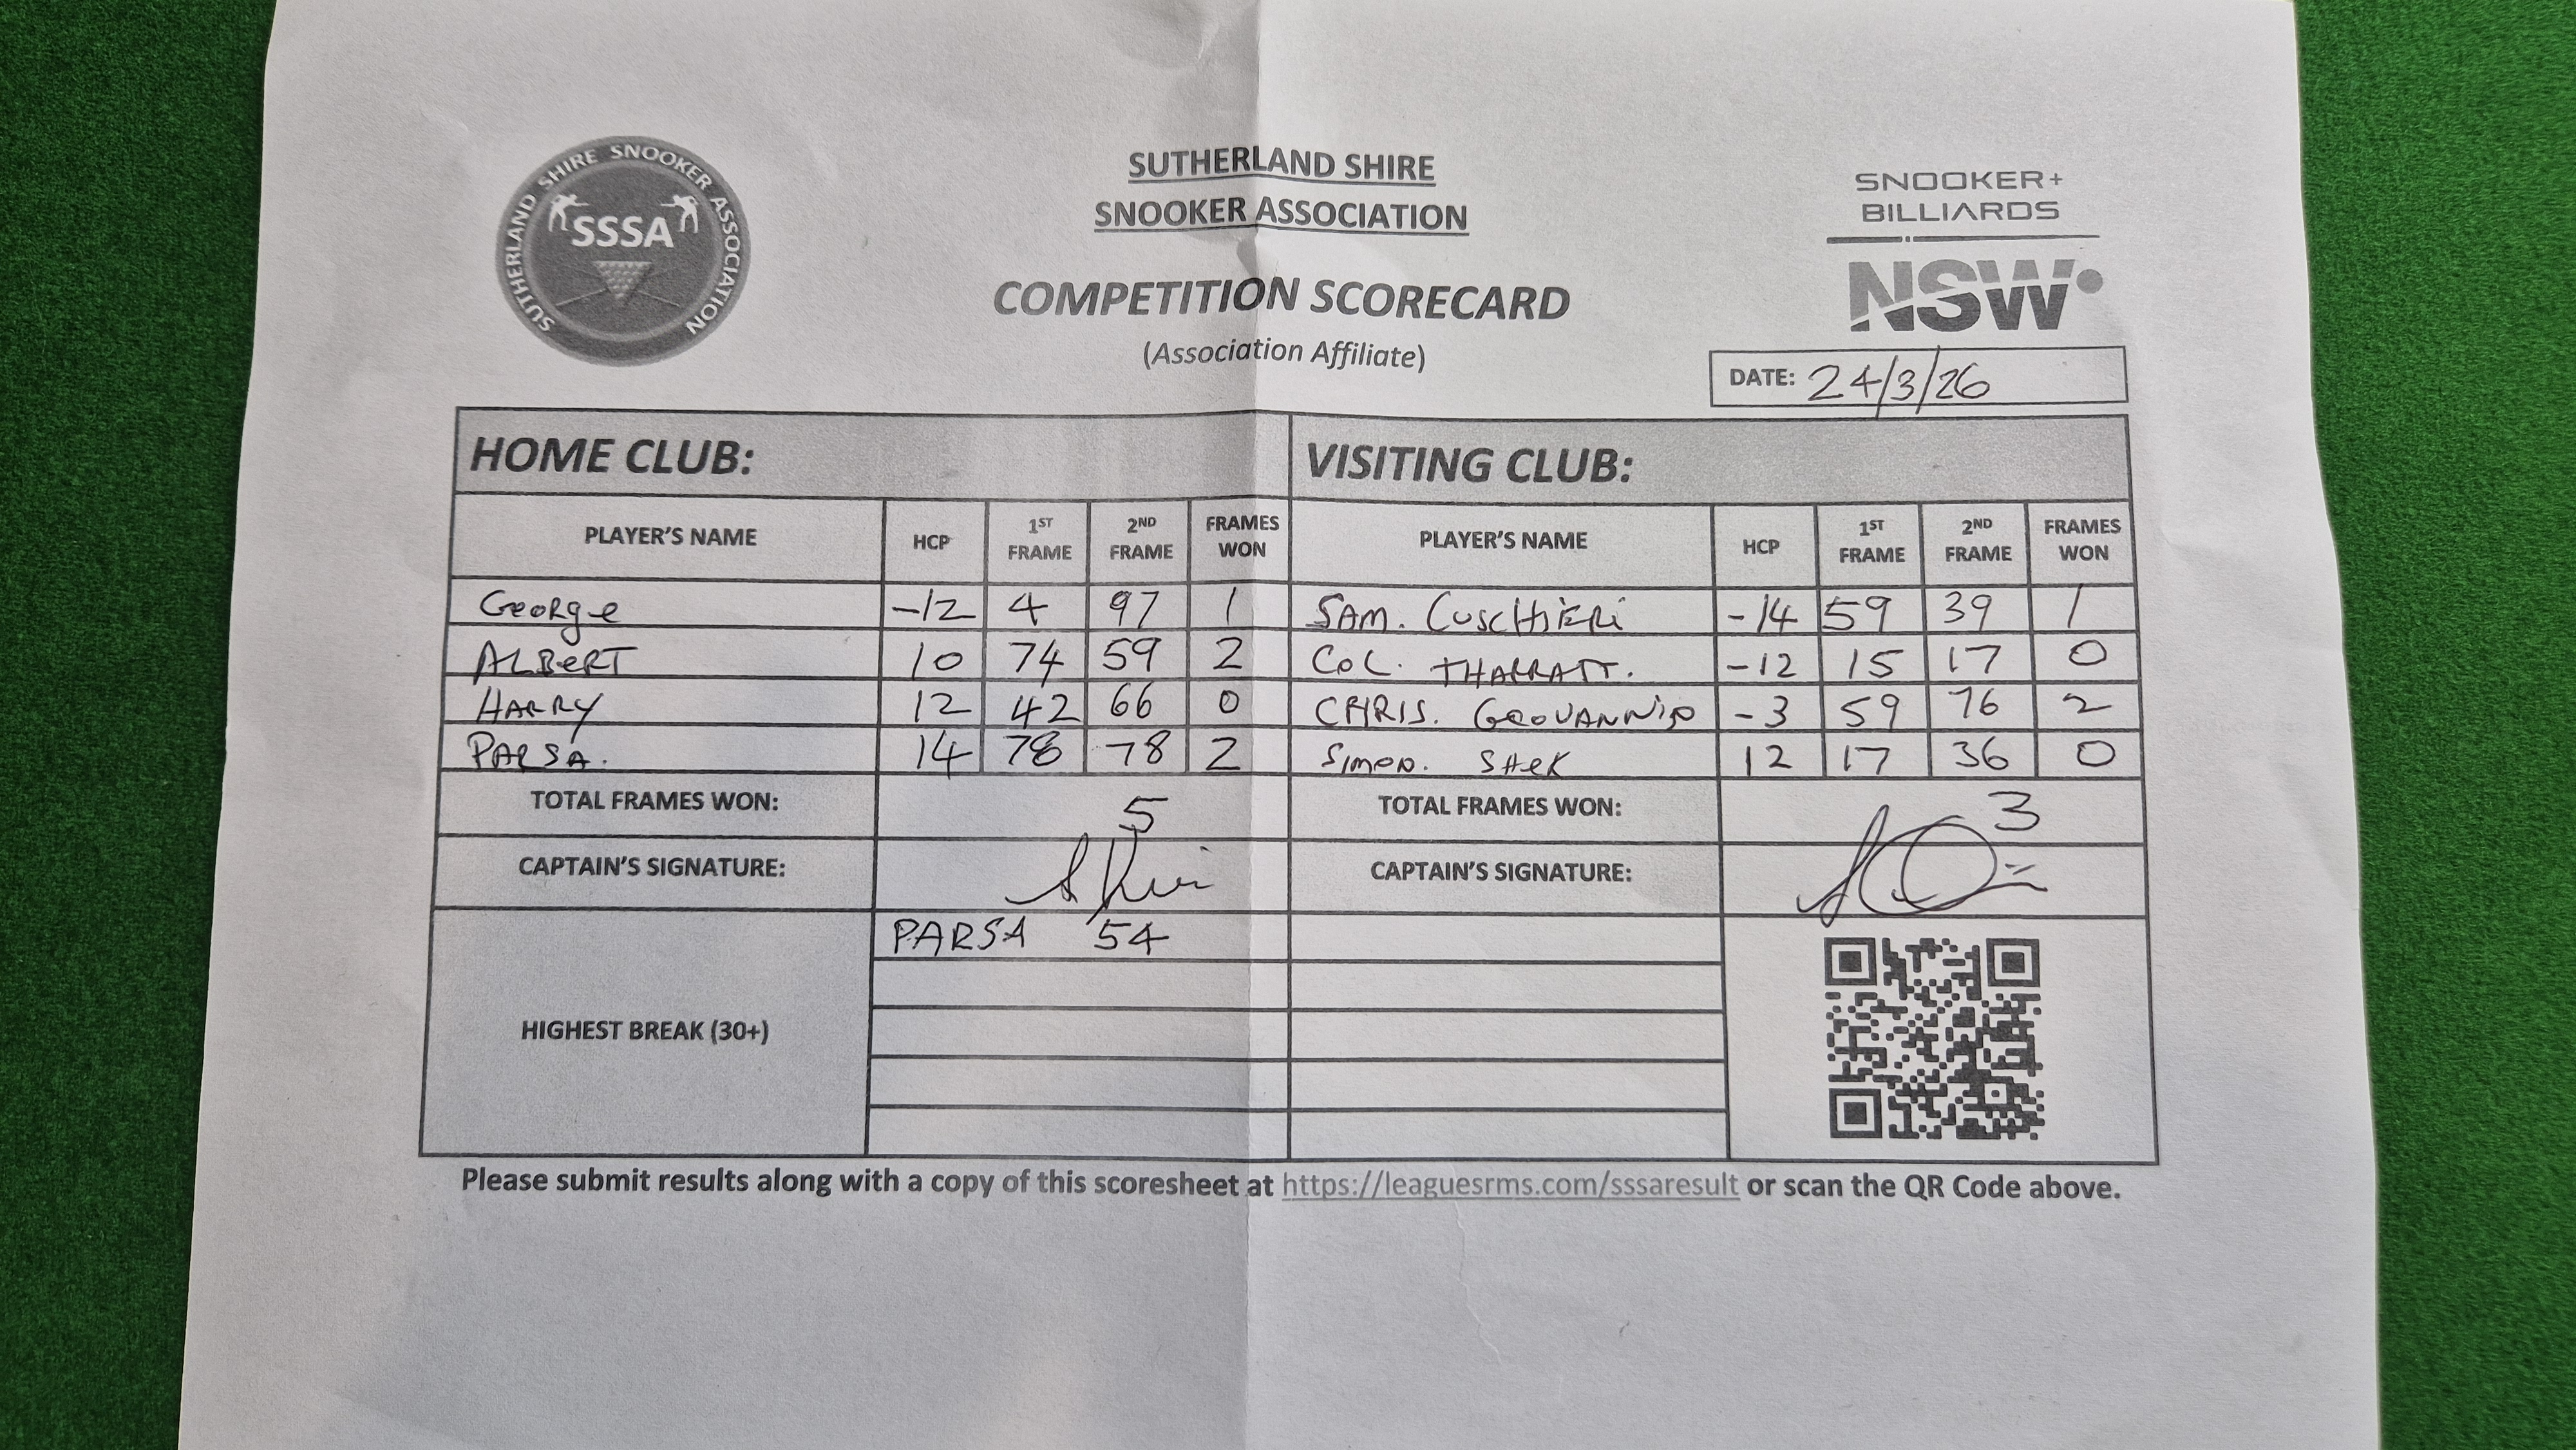 SUTHERLAND SHIRE SNOOKER ASSOCIATION
SSSA
SUTHERLAND SHIRE
SNOOKER ASSOCIATION
COMPETITION SCORECARD
(Association Affiliate)
SNOOKER+
BILLIARDS
NSW
DATE: 24/3/26
HOME CLUB: VISITING CLUB:
PLAYER'S NAME HCP 1ST FRAME 2ND FRAME FRAMES WON PLAYER'S NAME HCP 1ST FRAME 2ND FRAME FRAMES WON
George -12 4 97 1 SAM. CUSCHIERI -14 59 39 1
ALBERT 10 74 59 2 COL. THARRATT. -12 15 17 0
HARRY 12 42 66 0 CHRIS. -3 59 76 2
PARSA. 14 78 78 2 Simon. SHEK 12 17 36 0
TOTAL FRAMES WON: 5 TOTAL FRAMES WON: 3
CAPTAIN'S SIGNATURE: CAPTAIN'S SIGNATURE:
HIGHEST BREAK (30+) PARSA 54
Please submit results along with a copy of this scoresheet at https://leaguesrms.com/sssaresult or scan the QR Code above.